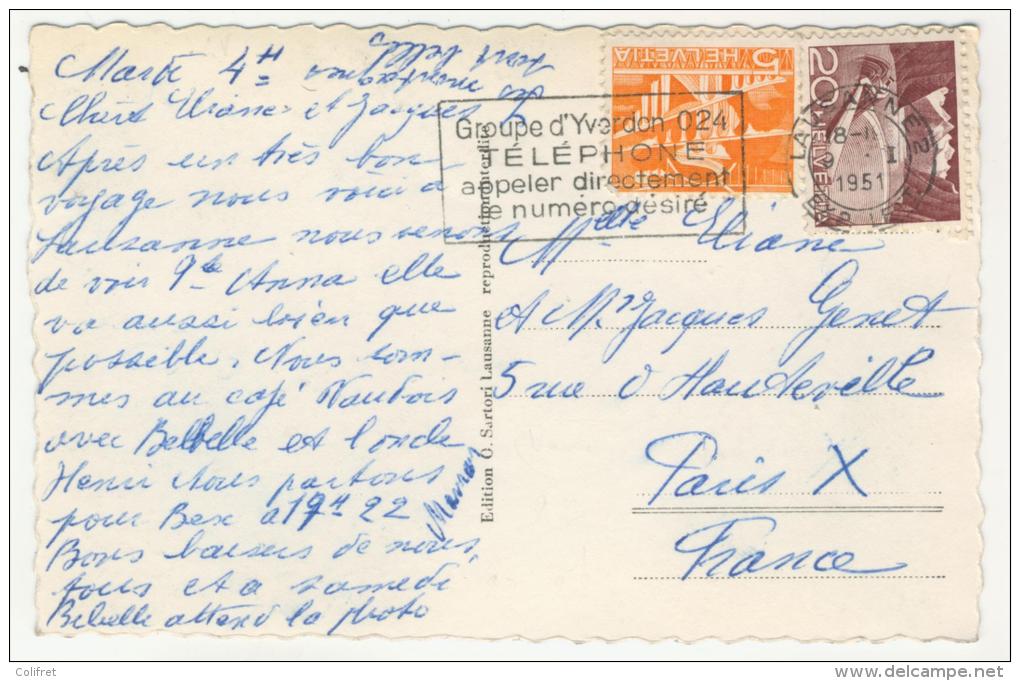 Mardi 4H
Chers Eliane et Jacques
Après un très bon
voyage nous voici à
Lausanne nous venons
de voir Anna elle
va aussi bien que
possible. Nous som-
mes au café Vaudois
avec Belbelle et l'oncle
Henri Nous partons
pour Bex à 19H 22
Bons baisers de nous
tous et à samedi
Bebelle attend la photo
Maman
Edition O. Sartori Lausanne reproduction interdite
Groupe d'Yverdon 024
TÉLÉPHONE
appeler directement
le numéro désiré
HELVETIA 5
20 HELVETIA
LAUSANNE 2
1951
Melle Eliane
et Mr Jacques Genet
5 rue d'Hauteville
Paris X
France
Colifret
www.delcampe.net